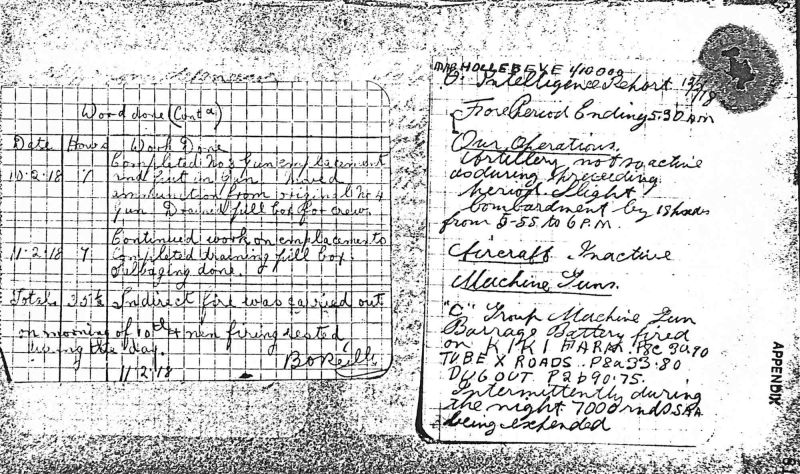 Word done (Cont d)
Date Hours Work Done
Completed No 3 Gun emplacement
10.2.18 7 and put in gun
ammunition from original No 4
gun. Drained pill box for crew.
Continued work on emplacements
11.2.18 7 Completed draining pill box.
Salvaging done.
Totals 35½ Indirect fire was carried out
on morning of 10th & men firing rested
during the day.
11/2/18
MAP HOLLEBEKE 1/10000
Intelligence Report
For Period Ending 5.30 AM
Our Operations.
Artillery not so active
as during preceeding
period. Slight
bombardment by 18 hours
from 5-55 to 6 P.M.
Aircraft Inactive
Machine Guns.
"C" Group Machine Gun
Barrage Battery fired
on KIKI FARM. P8c 90.90
TUBE X ROADS. P8a 33.80
DUGOUT P2b 90.75.
Intermittently during
the night 7000 rnds SAA
being expended
APPENDIX